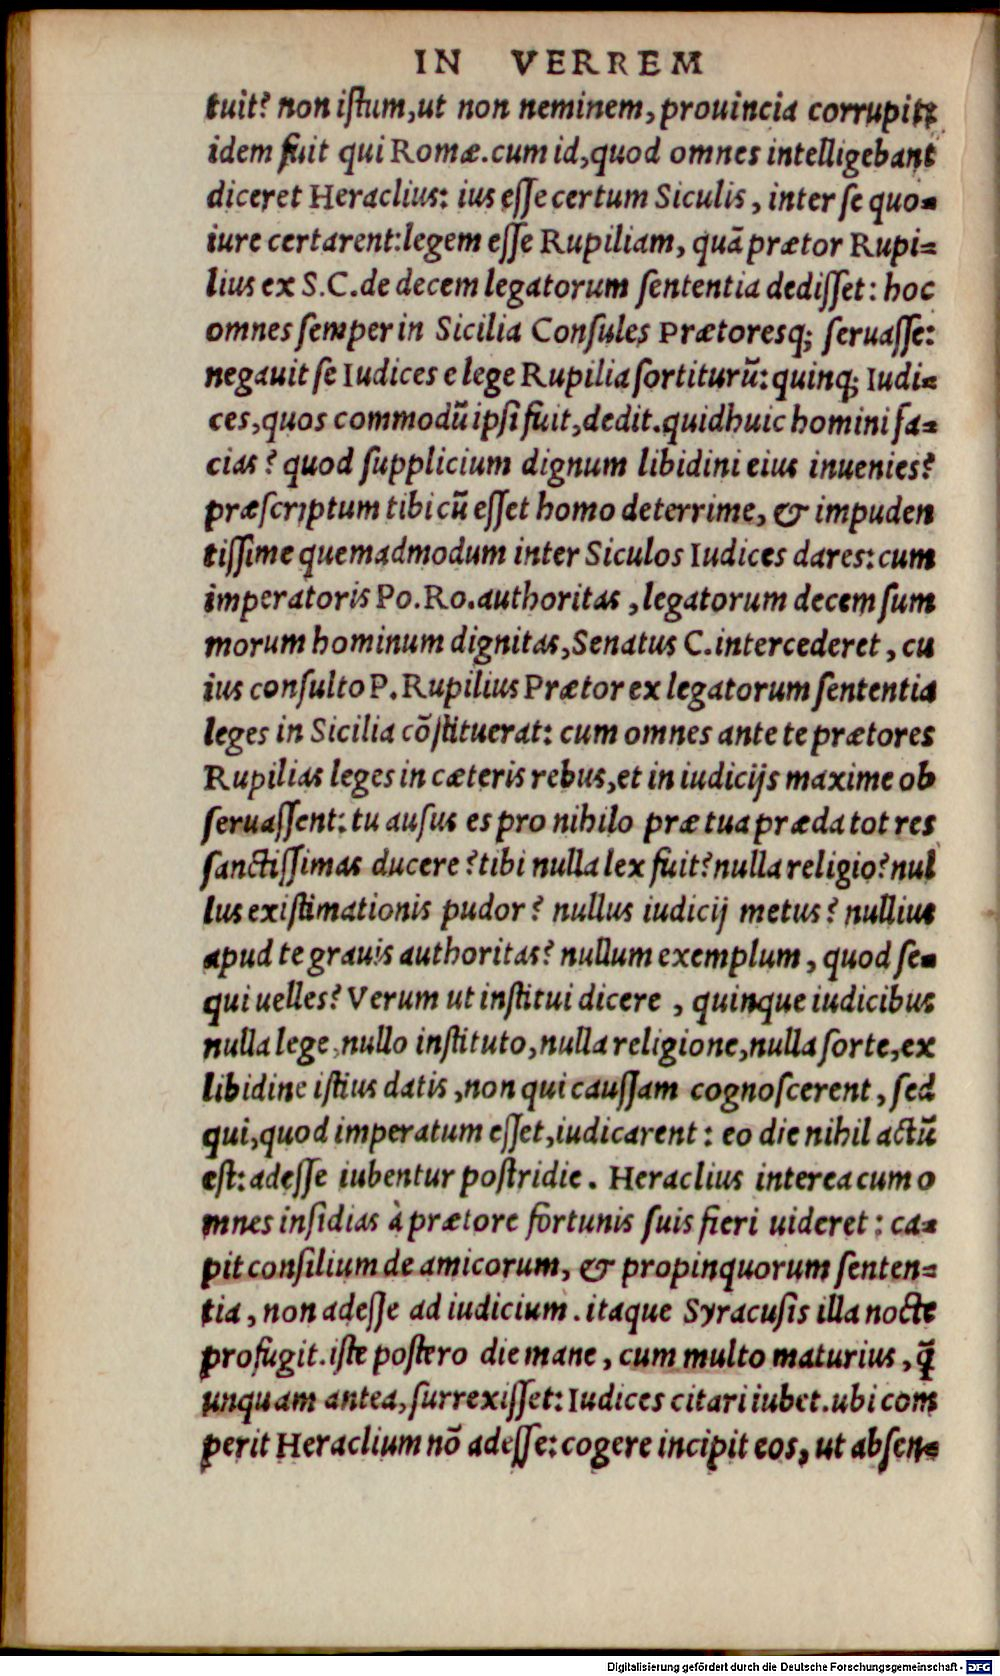 IN VERREM
tuit? non istum,ut non neminem, prouincia corrupit:
idem fuit qui Romæ.cum id,quod omnes intelligebant
diceret Heraclius: ius esse certum Siculis, inter se quo-
iure certarent:legem esse Rupiliam, quã prætor Rupi=
lius ex S.C.de decem legatorum sententia dedisset: hoc
omnes semper in Sicilia Consules Prætoresq; seruasse:
negauit se Iudices e lege Rupilia sortiturũ: quinq; Iudi-
ces,quos commodũ ipsi fuit,dedit.quid huic homini fa-
cias? quod supplicium dignum libidini eius inuenies?
præscriptum tibi cũ esset homo deterrime, & impuden
tissime quemadmodum inter Siculos Iudices dares: cum
imperatoris Po.Ro.authoritas, legatorum decem sum
morum hominum dignitas, Senatus C.intercederet, cu
ius consulto P. Rupilius Prætor ex legatorum sententia
leges in Sicilia cõstituerat: cum omnes ante te prætores
Rupilias leges in cæteris rebus,et in iudicijs maxime ob
seruassent: tu ausus es pro nihilo præ tua præda tot res
sanctissimas ducere? tibi nulla lex fuit? nulla religio? nul
lus existimationis pudor? nullus iudicij metus? nullius
apud te grauis authoritas? nullum exemplum, quod se-
qui uelles? Verum ut institui dicere, quinque iudicibus
nulla lege,nullo instituto,nulla religione,nulla sorte,ex
libidine istius datis,non qui caussam cognoscerent, sed
qui,quod imperatum esset,iudicarent: eo die nihil actũ
est: adesse iubentur postridie. Heraclius interea cum o
mnes insidias à prætore fortunis suis fieri uideret: ca-
pit consilium de amicorum, & propinquorum senten=
tia, non adesse ad iudicium. itaque Syracusis illa nocte
profugit.iste postero die mane, cum multo maturius, q̃
unquam antea, surrexisset: Iudices citari iubet.ubi com
perit Heraclium nõ adesse: cogere incipit eos, ut absen-
Digitalisierung gefördert durch die Deutsche Forschungsgemeinschaft - DFG